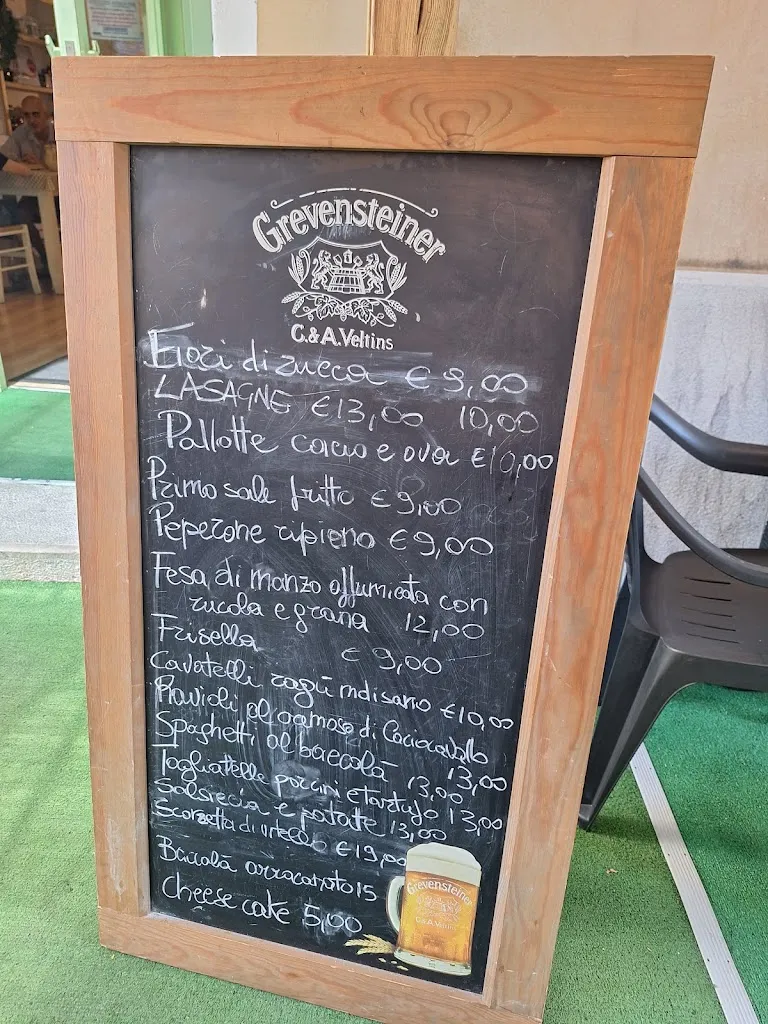 Grevensteiner
C.&A.Veltins
Fiori di zucca € 9,00
LASAGNE €13,00 10,00
Pallotte cacio e ova €10,00
Primo sale fritto €9,00
Peperone ripieno €9,00
Fesa di manzo affumicata con
rucola e grana 12,00
Frisella € 9,00
Cavatelli ragù molisano €10,00
Ravioli al
di Caciocavallo
13,00
Spaghetti al baccalà 13,00
Tagliatelle porcini e tartufo 13,00
Salsiccia e patate 13,00
Scorzetta di vitello €19,00
Baccalà arracanato 15
cheese cake 5,00
Grevensteiner
C.&A.Veltins